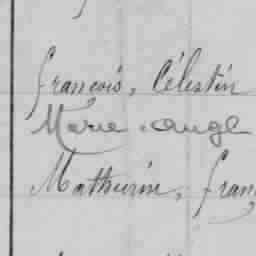 françois, Célestin
Marie ange
Mathurin, fran